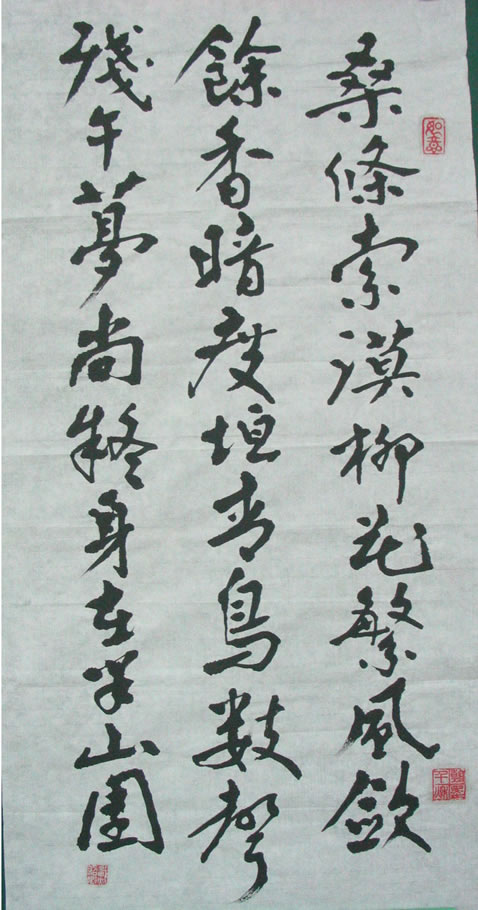 如意
桑條索漠柳花繁風斂
餘香暗度垣青鳥數聲
殘午夢尚疑身在半山園